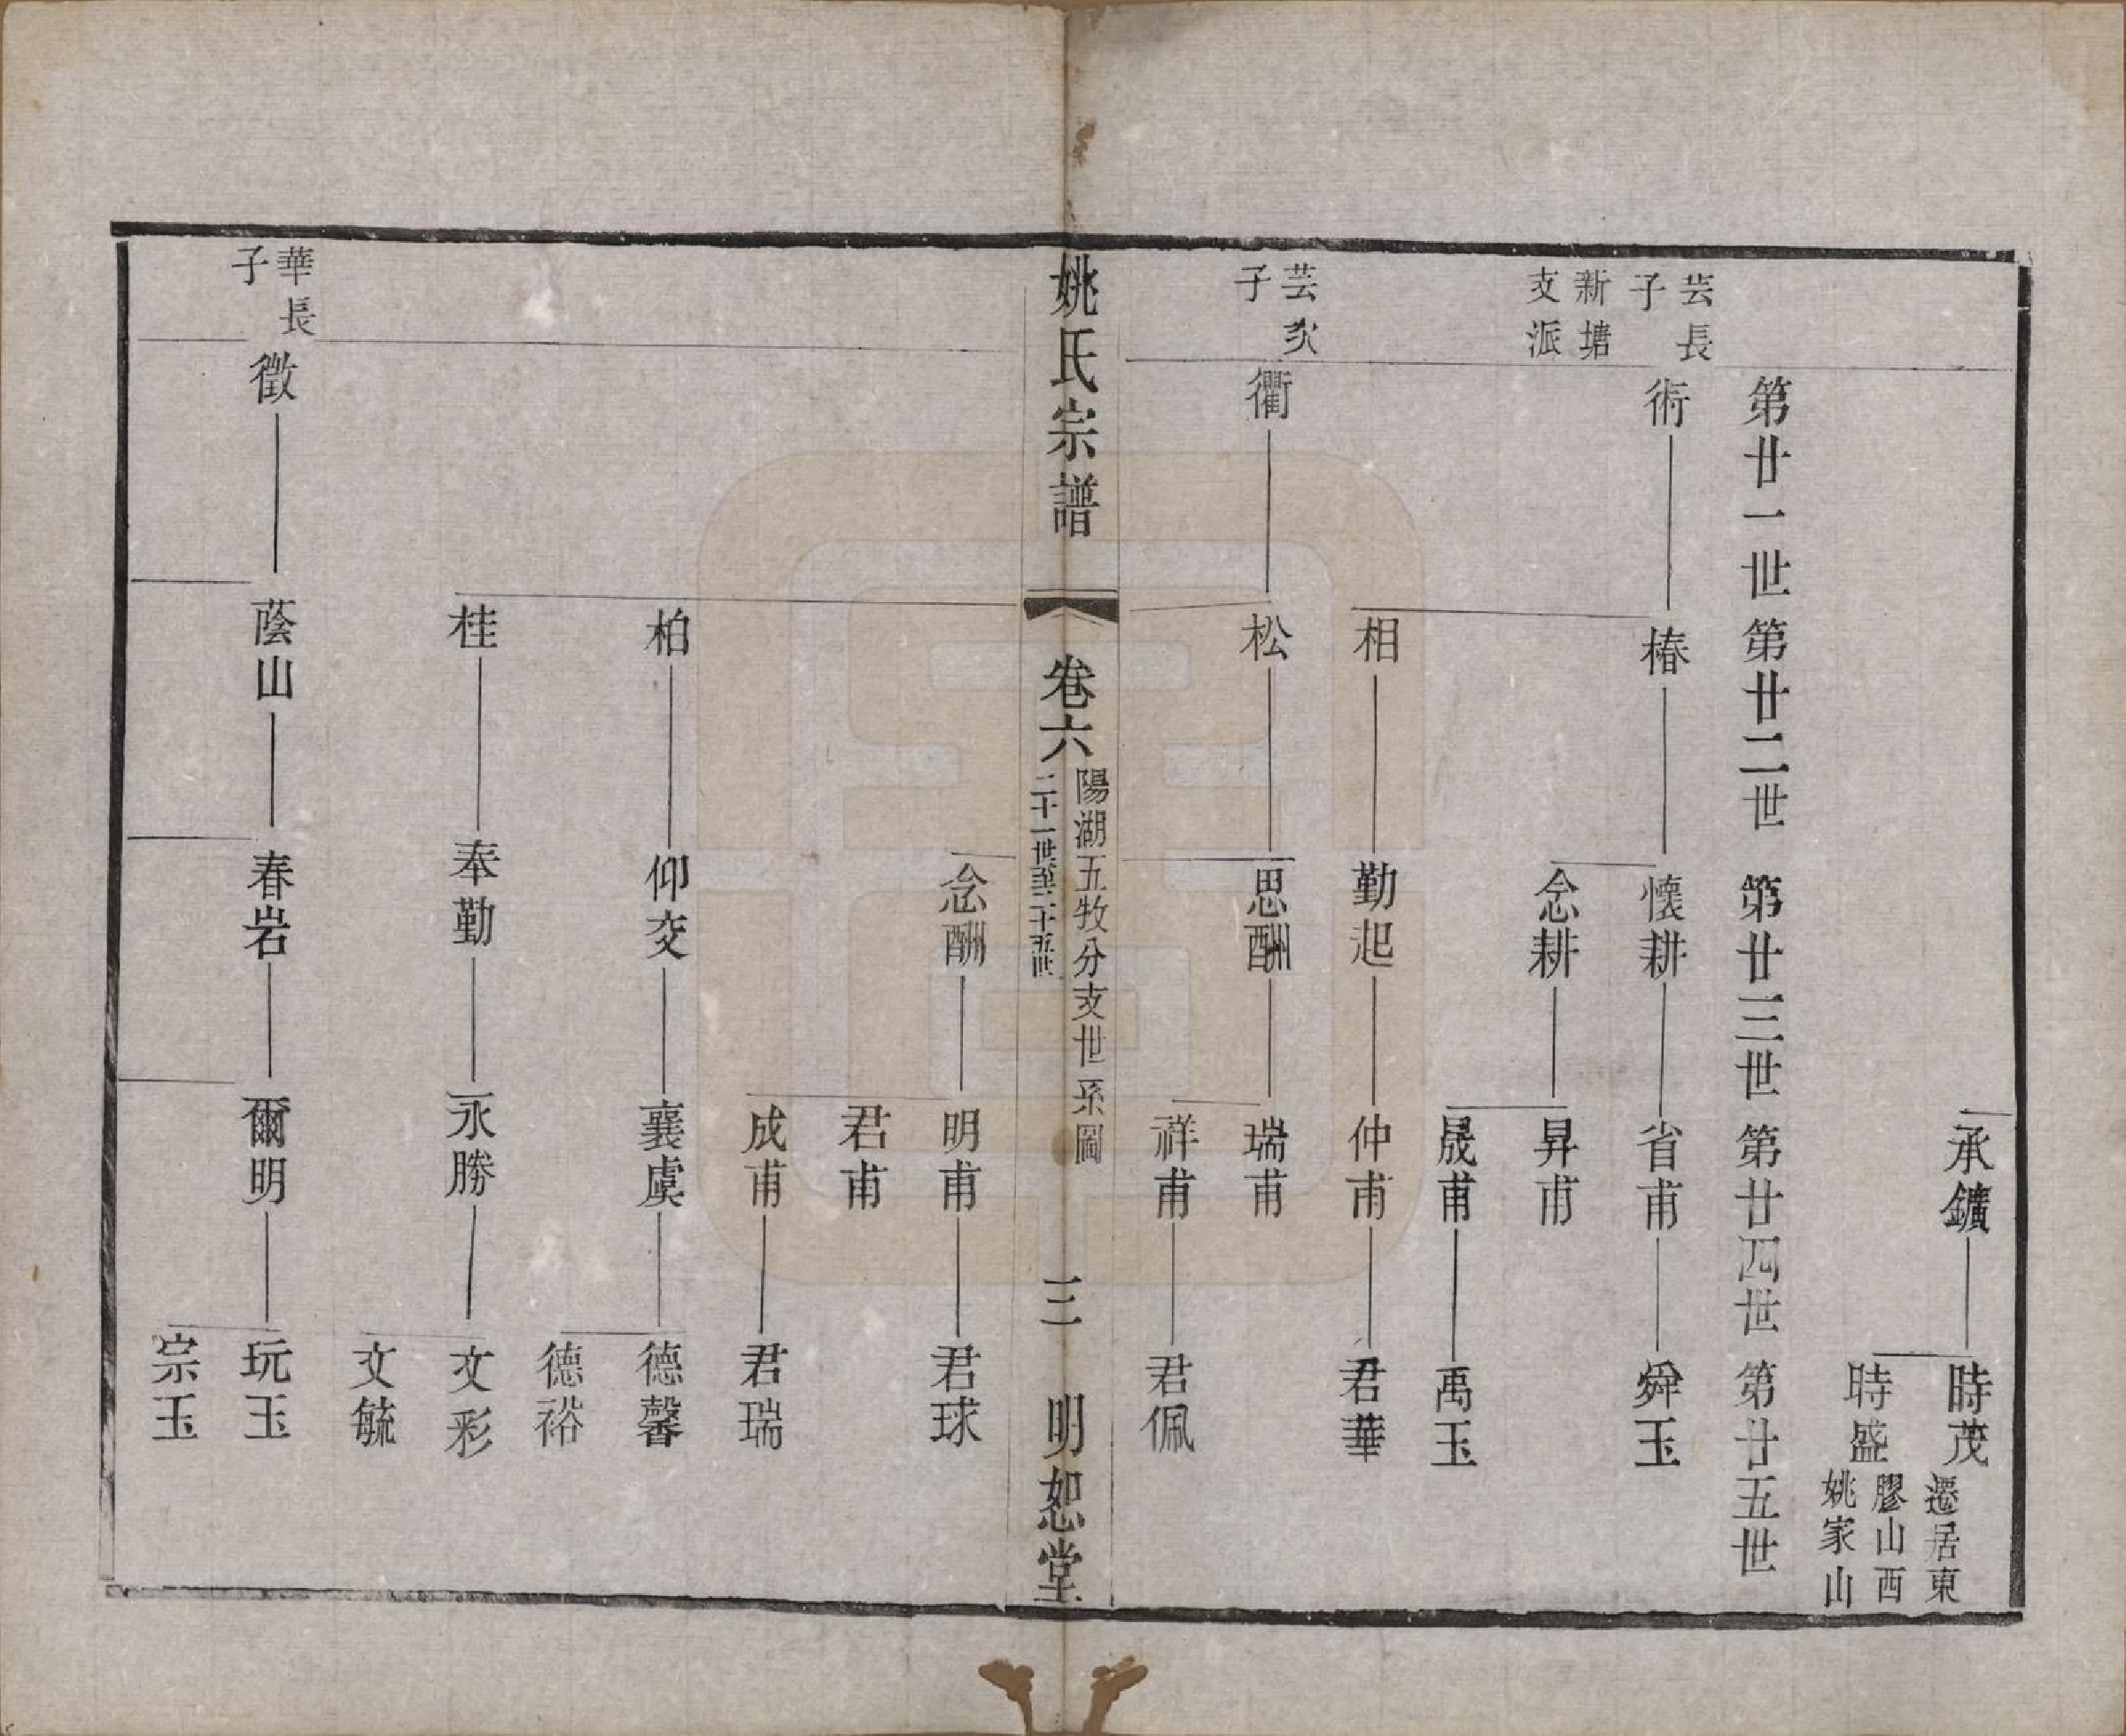 承鑛 時茂 遷居東
時盛 膠山西
姚家山
第廿一世 第廿二世 第廿三世 第廿四世 第廿五世
芸長
子
術 椿 懷耕 省甫 舜玉
新塘
支派
念耕 昇甫
晟甫 禹玉
相 勤起 仲甫 君華
芸次
子
衢 松 思酬 瑞甫
祥甫 君佩
姚氏宗譜 卷六 陽湖五牧分支世系圖 二十一世至二十五世 三 明恕堂
念酬 明甫 君球
君甫
成甫 君瑞
柏 仰交 襄虞 德馨
德裕
桂 奉勤 永勝 文彩
文毓
華長
子
徵 蔭山 春岩 爾明 玩玉
宗玉